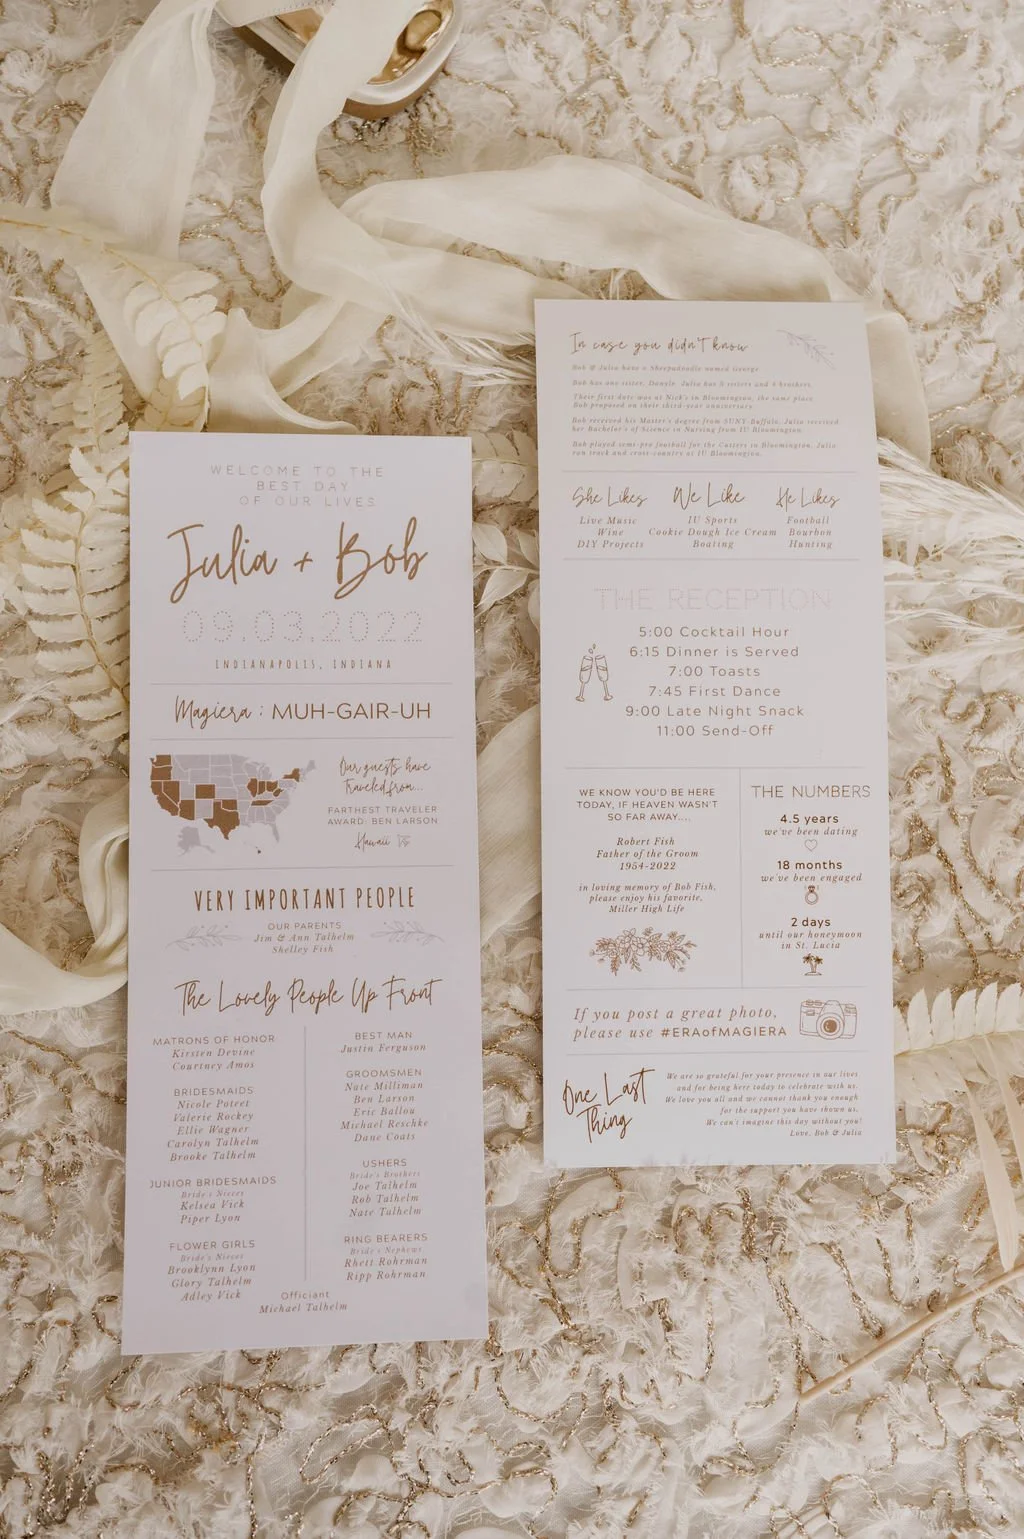 WELCOME TO THE
BEST DAY
OF OUR LIVES
Julia + Bob
09.03.2022
INDIANAPOLIS, INDIANA
Magiera : MUH-GAIR-UH
Our guests have
traveled from...
FARTHEST TRAVELER
AWARD: BEN LARSON
Hawaii
VERY IMPORTANT PEOPLE
OUR PARENTS
Jim & Ann Talhelm
Shelley Fish
The Lovely People Up Front
MATRONS OF HONOR
Kirsten Devine
Courtney Amos
BRIDESMAIDS
Nicole Poteet
Valerie Rockey
Ellie Wagner
Carolyn Talhelm
Brooke Talhelm
JUNIOR BRIDESMAIDS
Bride's Nieces
Kelsea Vick
Piper Lyon
FLOWER GIRLS
Bride's Nieces
Brooklynn Lyon
Glory Talhelm
Adley Vick
BEST MAN
Justin Ferguson
GROOMSMEN
Nate Milliman
Ben Larson
Eric Ballou
Michael Reschke
Dane Coats
USHERS
Bride's Brothers
Joe Talhelm
Rob Talhelm
Nate Talhelm
RING BEARERS
Bride's Nephews
Rhett Rohrman
Ripp Rohrman
Officiant
Michael Talhelm
In case you didn't know
Bob & Julia have a Sheepadoodle named George
Bob has one sister, Danyle. Julia has 5 sisters and 4 brothers.
Their first date was at Nick's in Bloomington, the same place
Bob proposed on their third-year anniversary.
Bob received his Master's degree from SUNY Buffalo. Julia received
her Bachelor's of Science in Nursing from IU Bloomington.
Bob played semi-pro football for the Cutters in Bloomington. Julia
ran track and cross-country at IU Bloomington.
She Likes
Live Music
Wine
DIY Projects
We Like
IU Sports
Cookie Dough Ice Cream
Boating
He Likes
Football
Bourbon
Hunting
THE RECEPTION
5:00 Cocktail Hour
6:15 Dinner is Served
7:00 Toasts
7:45 First Dance
9:00 Late Night Snack
11:00 Send-Off
WE KNOW YOU'D BE HERE
TODAY, IF HEAVEN WASN'T
SO FAR AWAY....
Robert Fish
Father of the Groom
1954-2022
in loving memory of Bob Fish,
please enjoy his favorite,
Miller High Life
THE NUMBERS
4.5 years
we've been dating
18 months
we've been engaged
2 days
until our honeymoon
in St. Lucia
If you post a great photo,
please use #ERAofMAGIERA
One Last
Thing
We are so grateful for your presence in our lives
and for being here today to celebrate with us.
We love you all and we cannot thank you enough
for the support you have shown us.
We can't imagine this day without you!
Love, Bob & Julia